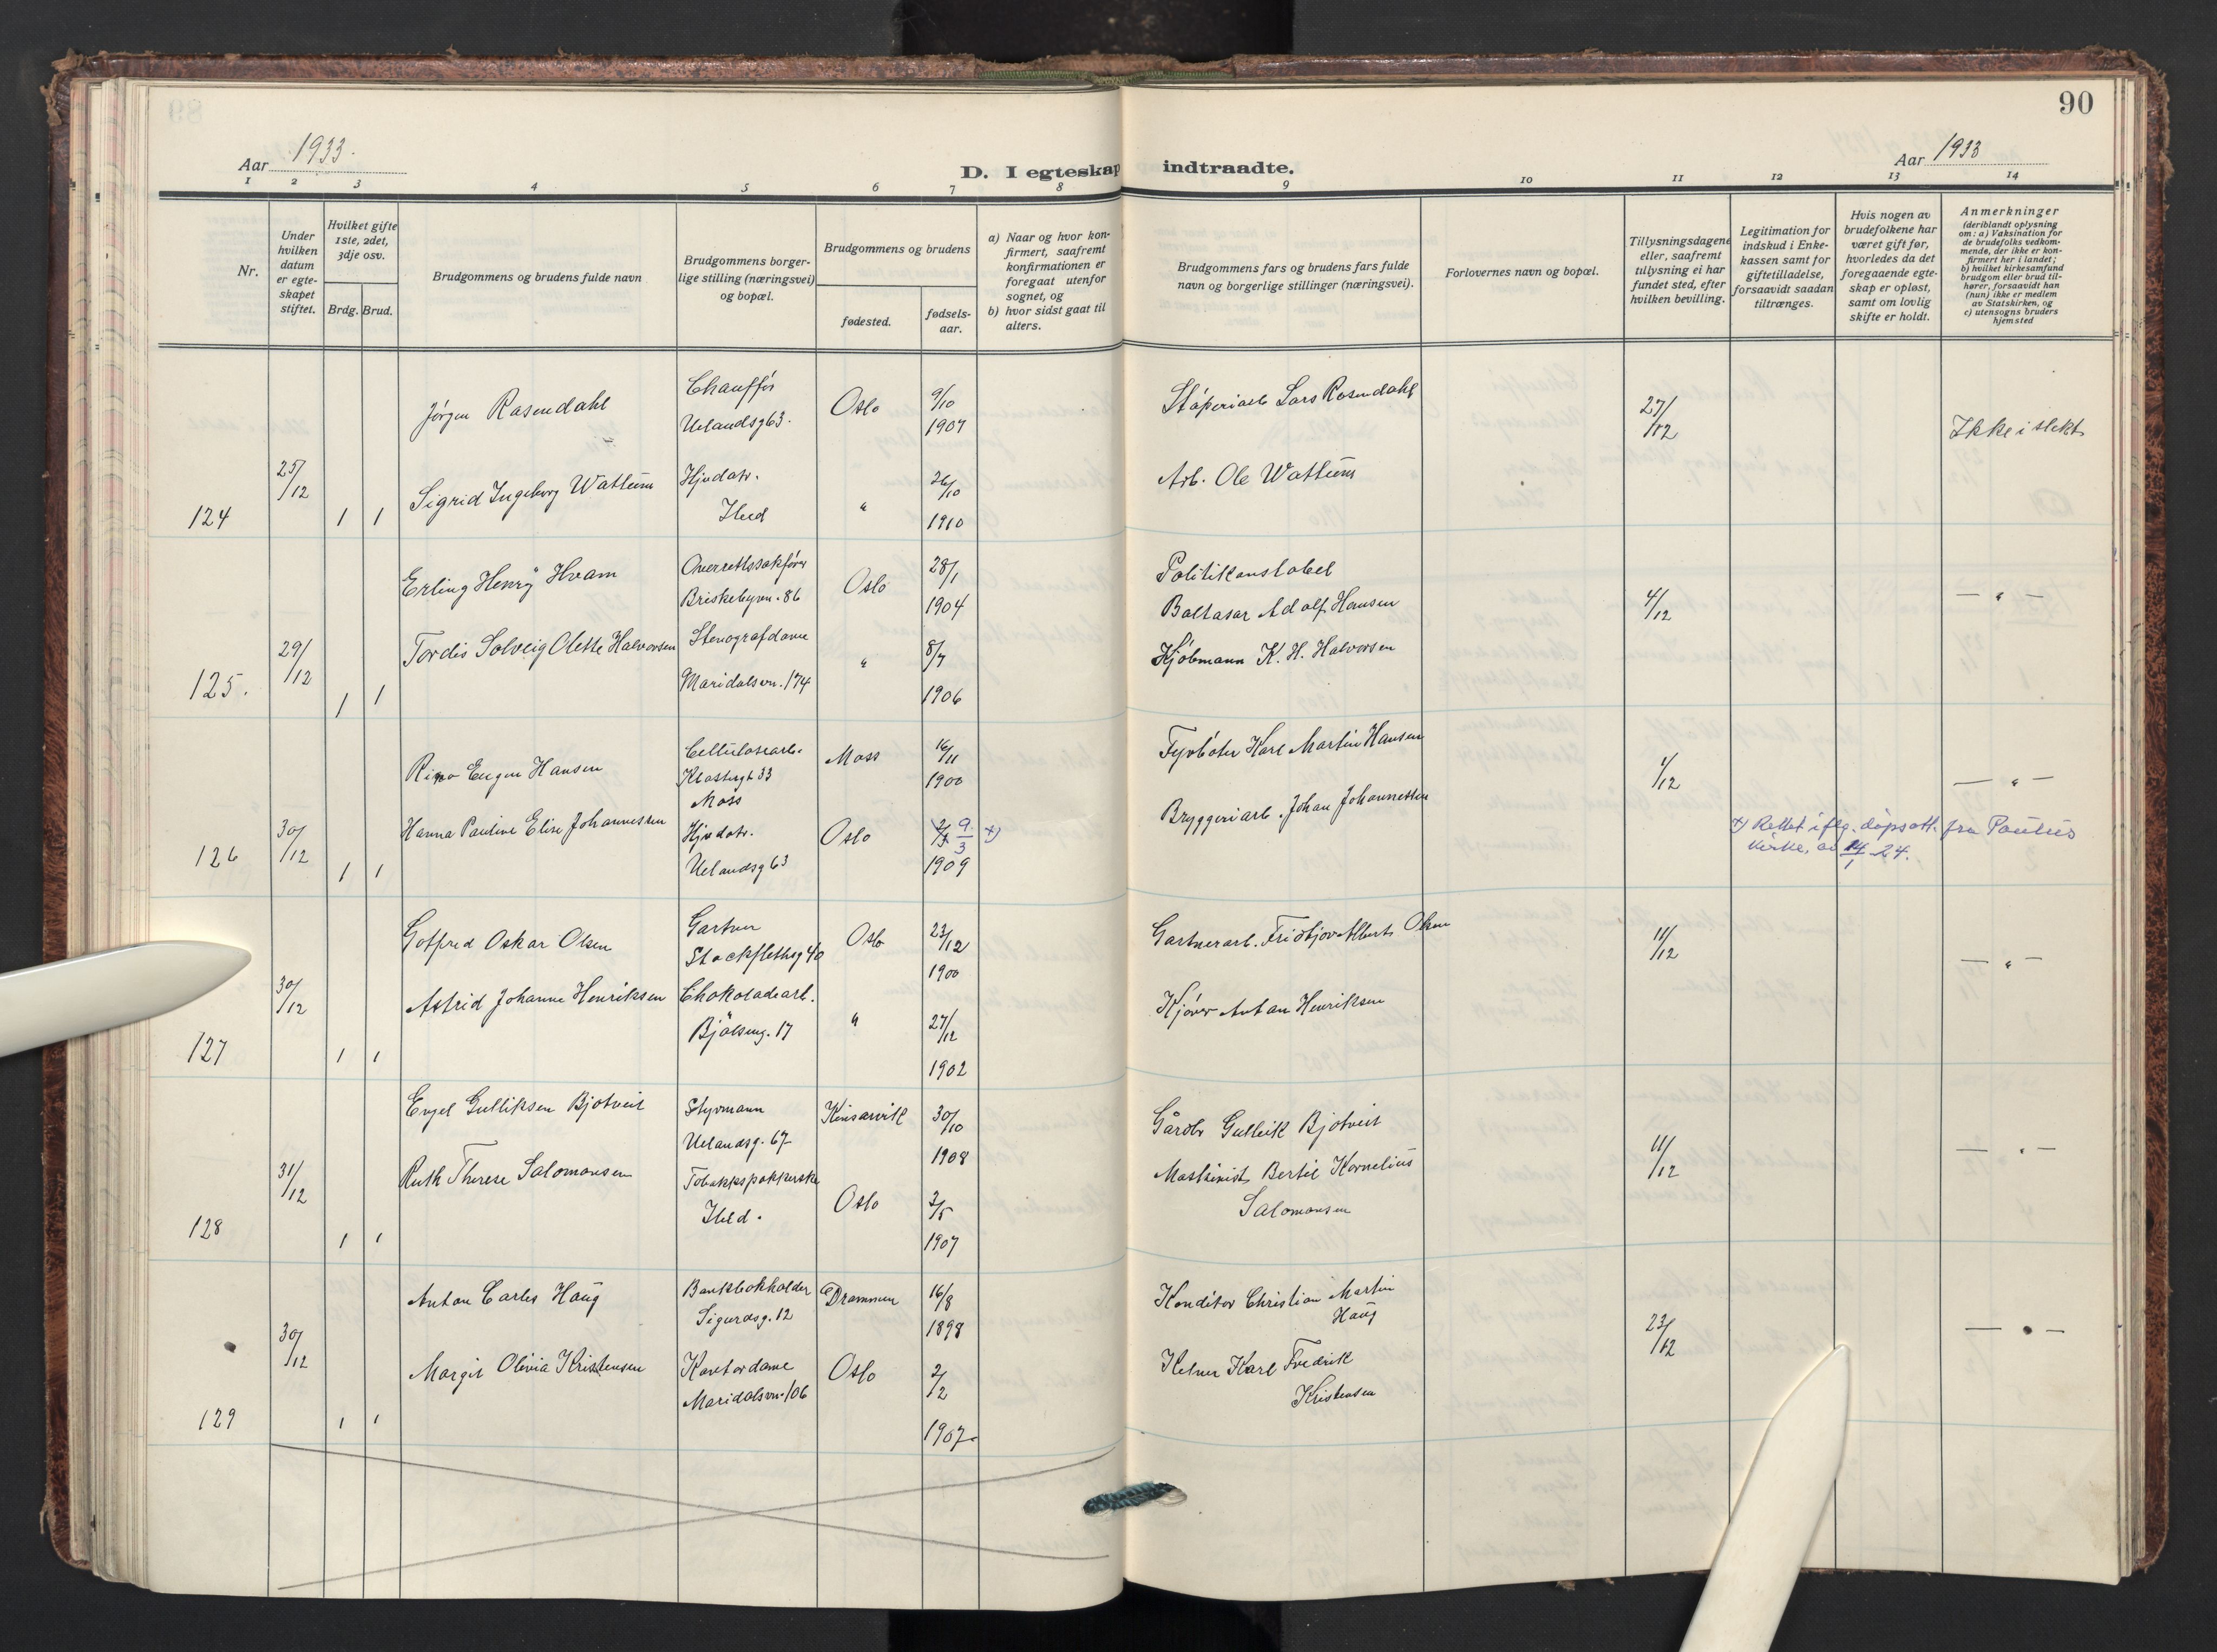 90
Aar 1933.
D. I egteskap indtraadte.
Aar 1933
1 2 3 4 5 6 7 8 9 10 11 12 13 14
Nr.
Under hvilken datum er egteskapet stiftet.
Hvilket gifte 1ste, 2det, 3dje osv.
Brdg. Brud.
Brudgommens og brudens fulde navn
Brudgommens borgerlige stilling (næringsvei) og bopæl.
Brudgommens og brudens
fødested.
fødselsaar.
a) Naar og hvor konfirmert, saafremt konfirmationen er foregaat utenfor sognet, og
b) hvor sidst gaat til alters.
Brudgommens fars og brudens fars fulde navn og borgerlige stillinger (næringsvei).
Forlovernes navn og bopæl.
Tillysningsdagene eller, saafremt tillysning ei har fundet sted, efter hvilken bevilling.
Legitimation for indskud i Enkekassen samt for giftetilladelse, forsaavidt saadan tiltrænges.
Hvis nogen av brudefolkene har været gift før, hvorledes da det foregaaende egteskap er opløst, samt om lovlig skifte er holdt.
Anmerkninger
(deriblandt oplysning om: a) Vaksination for de brudefolks vedkommende, der ikke er konfirmert her i landet;
b) hvilket kirkesamfund brudgom eller brud tilhører, forsaavidt han (hun) ikke er medlem av Statskirken, og
c) utensogns bruders hjemsted
124 25/12 1 1
Jørgen Rasendahl Chauffør Uelandsg 63. Oslo 9/10 1907
Støperiarb Lars Rosendahl 27/12 Ikke i slekt
Sigrid Ingeborg Wattum Hjvdatr. Ibid " 26/10 1910
Arb. Ole Wattum
125. 29/12 1 1
Erling Henry Hvam Overrettssakfører Briskebyvn. 86 Oslo 28/1 1904
Politikonstabel Baltasar Adolf Hansen 4/12 — " —
Tordis Solveig Olette Halvorsen Stenografdame Maridalsvn. 174 " 8/7 1906
Kjøbmann K. H. Halvorsen
126 30/12 1 1
Rino Eugen Hansen Cellulosearb. Klostergt 33 Moss Moss 16/11 1900
Fyrbøter Karl Martin Hansen 1/12 — " —
Hanna Pauline Elise Johannessen Hjvdatr. Uelandsg 63 Oslo 9/3 x) 1909
Bryggeriarb. Johan Johannessen
x) Rettet iflg. dåpsatt. fra Paulus
kirke, av 14/1 24.
127 30/12 1 1
Gotfred Oskar Olsen Gartner Stockflethsg 40 Oslo 23/12 1900
Gartnerarb. Fridtjov Albert Olsen 11/12 — " —
Astrid Johanne Henriksen Chokoladearb. Bjølseng. 17 " 27/12 1902
Kjører Anton Henriksen
128 31/12 1 1
Engel Gulliksen Bjotveit Styrmann Uelandsg. 67 Kinsarvik 30/10 1908
Gårdbr Gulleik Bjotveit 11/12 — " —
Ruth Therese Salomonsen Tobakkspakkerske Ibid. Oslo 3/5 1907
Maskinist Bertil Kornelius Salomonsen
129 30/12 1 1
Anton Carles Haug Bankbokholder Sigurdsg. 12 Drammen 16/8 1898
Konditor Christian Martin Haug 23/12 — " —
Margit Olivia Kristensen Kontordame Maridalsvn. 106 Oslo 2/2 1907.
Kelner Karl Fredrik Kristensen